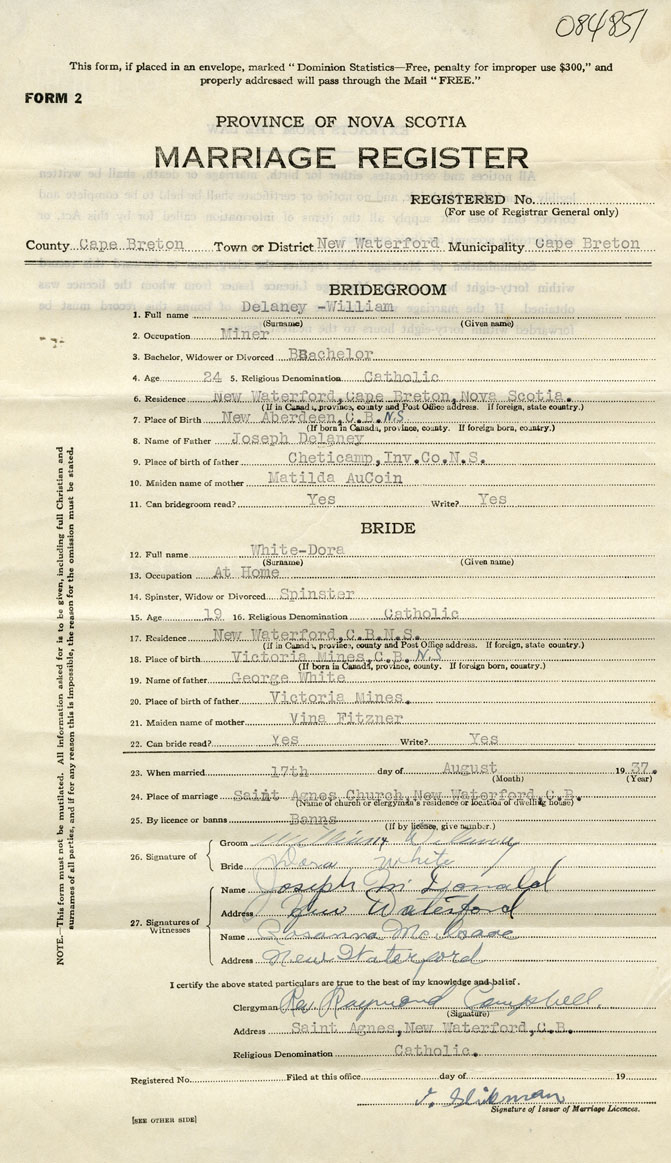 084851
This form, if placed in an envelope, marked "Dominion Statistics—Free, penalty for improper use $300," and
properly addressed will pass through the Mail "FREE."
FORM 2
PROVINCE OF NOVA SCOTIA
MARRIAGE REGISTER
REGISTERED No.
(For use of Registrar General only)
County Cape Breton Town or District New Waterford Municipality Cape Breton
BRIDEGROOM
1. Full name Delaney -William
(Surname) (Given name)
2. Occupation Miner
3. Bachelor, Widower or Divorced BBachelor
4. Age 24 5. Religious Denomination Catholic
6. Residence New Waterford, Cape Breton, Nova Scotia.
(If in Canada, province, county and Post Office address. If foreign, state country.)
7. Place of Birth New Aberdeen, C.B. NS
(If born in Canada, province, county. If foreign born, country.)
8. Name of Father Joseph Delaney
9. Place of birth of father Cheticamp, Inv.Co.N.S.
10. Maiden name of mother Matilda AuCoin
11. Can bridegroom read? Yes Write? Yes
BRIDE
12. Full name White-Dora
(Surname) (Given name)
13. Occupation At Home
14. Spinster, Widow or Divorced Spinster
15. Age 19 16. Religious Denomination Catholic
17. Residence New Waterford, C.B.N.S.
(If in Canada, province, county and Post Office address. If foreign, state country.)
18. Place of birth Victoria Mines, C.B. NS
(If born in Canada, province, county. If foreign born, country.)
19. Name of father George White
20. Place of birth of father Victoria Mines.
21. Maiden name of mother Vina Fitzner
22. Can bride read? Yes Write? Yes
23. When married 17th day of August 1937.
(Month) (Year)
24. Place of marriage Saint Agnes Church, New Waterford, C.B.
(Name of church or clergyman's residence or location of dwelling house)
25. By licence or banns Banns
(If by licence, give number.)
26. Signature of
Groom William Delaney
Bride Dora White
27. Signatures of Witnesses
Name Joseph McDonald
Address New Waterford
Name Rosanna McIsaac
Address New Waterford
I certify the above stated particulars are true to the best of my knowledge and belief.
Clergyman Rev Raymond Campbell
(Signature)
Address Saint Agnes, New Waterford, C.B.
Religious Denomination Catholic.
Registered No. Filed at this office day of 19
Signature of Issuer of Marriage Licences.
[SEE OTHER SIDE]
NOTE.—This form must not be mutilated. All information asked for is to be given, including full Christian and
surnames of all parties, and if for any reason this is impossible, the reason for the omission must be stated.